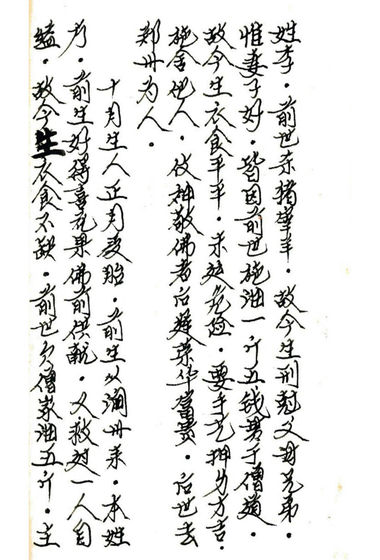 姓李．前世杀猪宰羊．故今生刑尅父母兄弟．
惟妻子好．皆因前世施油一斤五钱男于僧道．
故今生衣食平平．未过危险．要手艺押身方吉．
施舍他人．伎神敬佛者后篷荣华富贵．后世去
郑州为人．
十月生人正月受胎．前生从湖州来．本姓
方．前生好得喜花果佛前供献．又救过一人自
缢．故今生衣食不缺．前世欠僧家油五斤．主